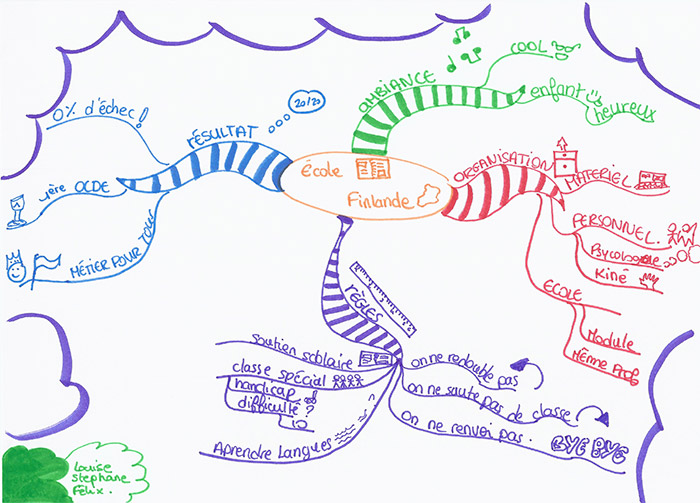 École
Finlande
AMBIANCE
COOL
enfant
heureux
ORGANISATION
MATERIEL
PERSONNEL.
Psycologue
Kiné
ECOLE
Module
Même Prof
RÈGLES
on ne redouble pas
on ne saute pas de classe
on ne renvoi pas.
BYE BYE
soutien scolaire
classe spécial
handicap
difficulté ?
Aprendre Langues
RÉSULTAT
20/20
0% d'échec!
1ère OCDE
MÉTIER POUR TOUS
Louise
Stephane
Félix.